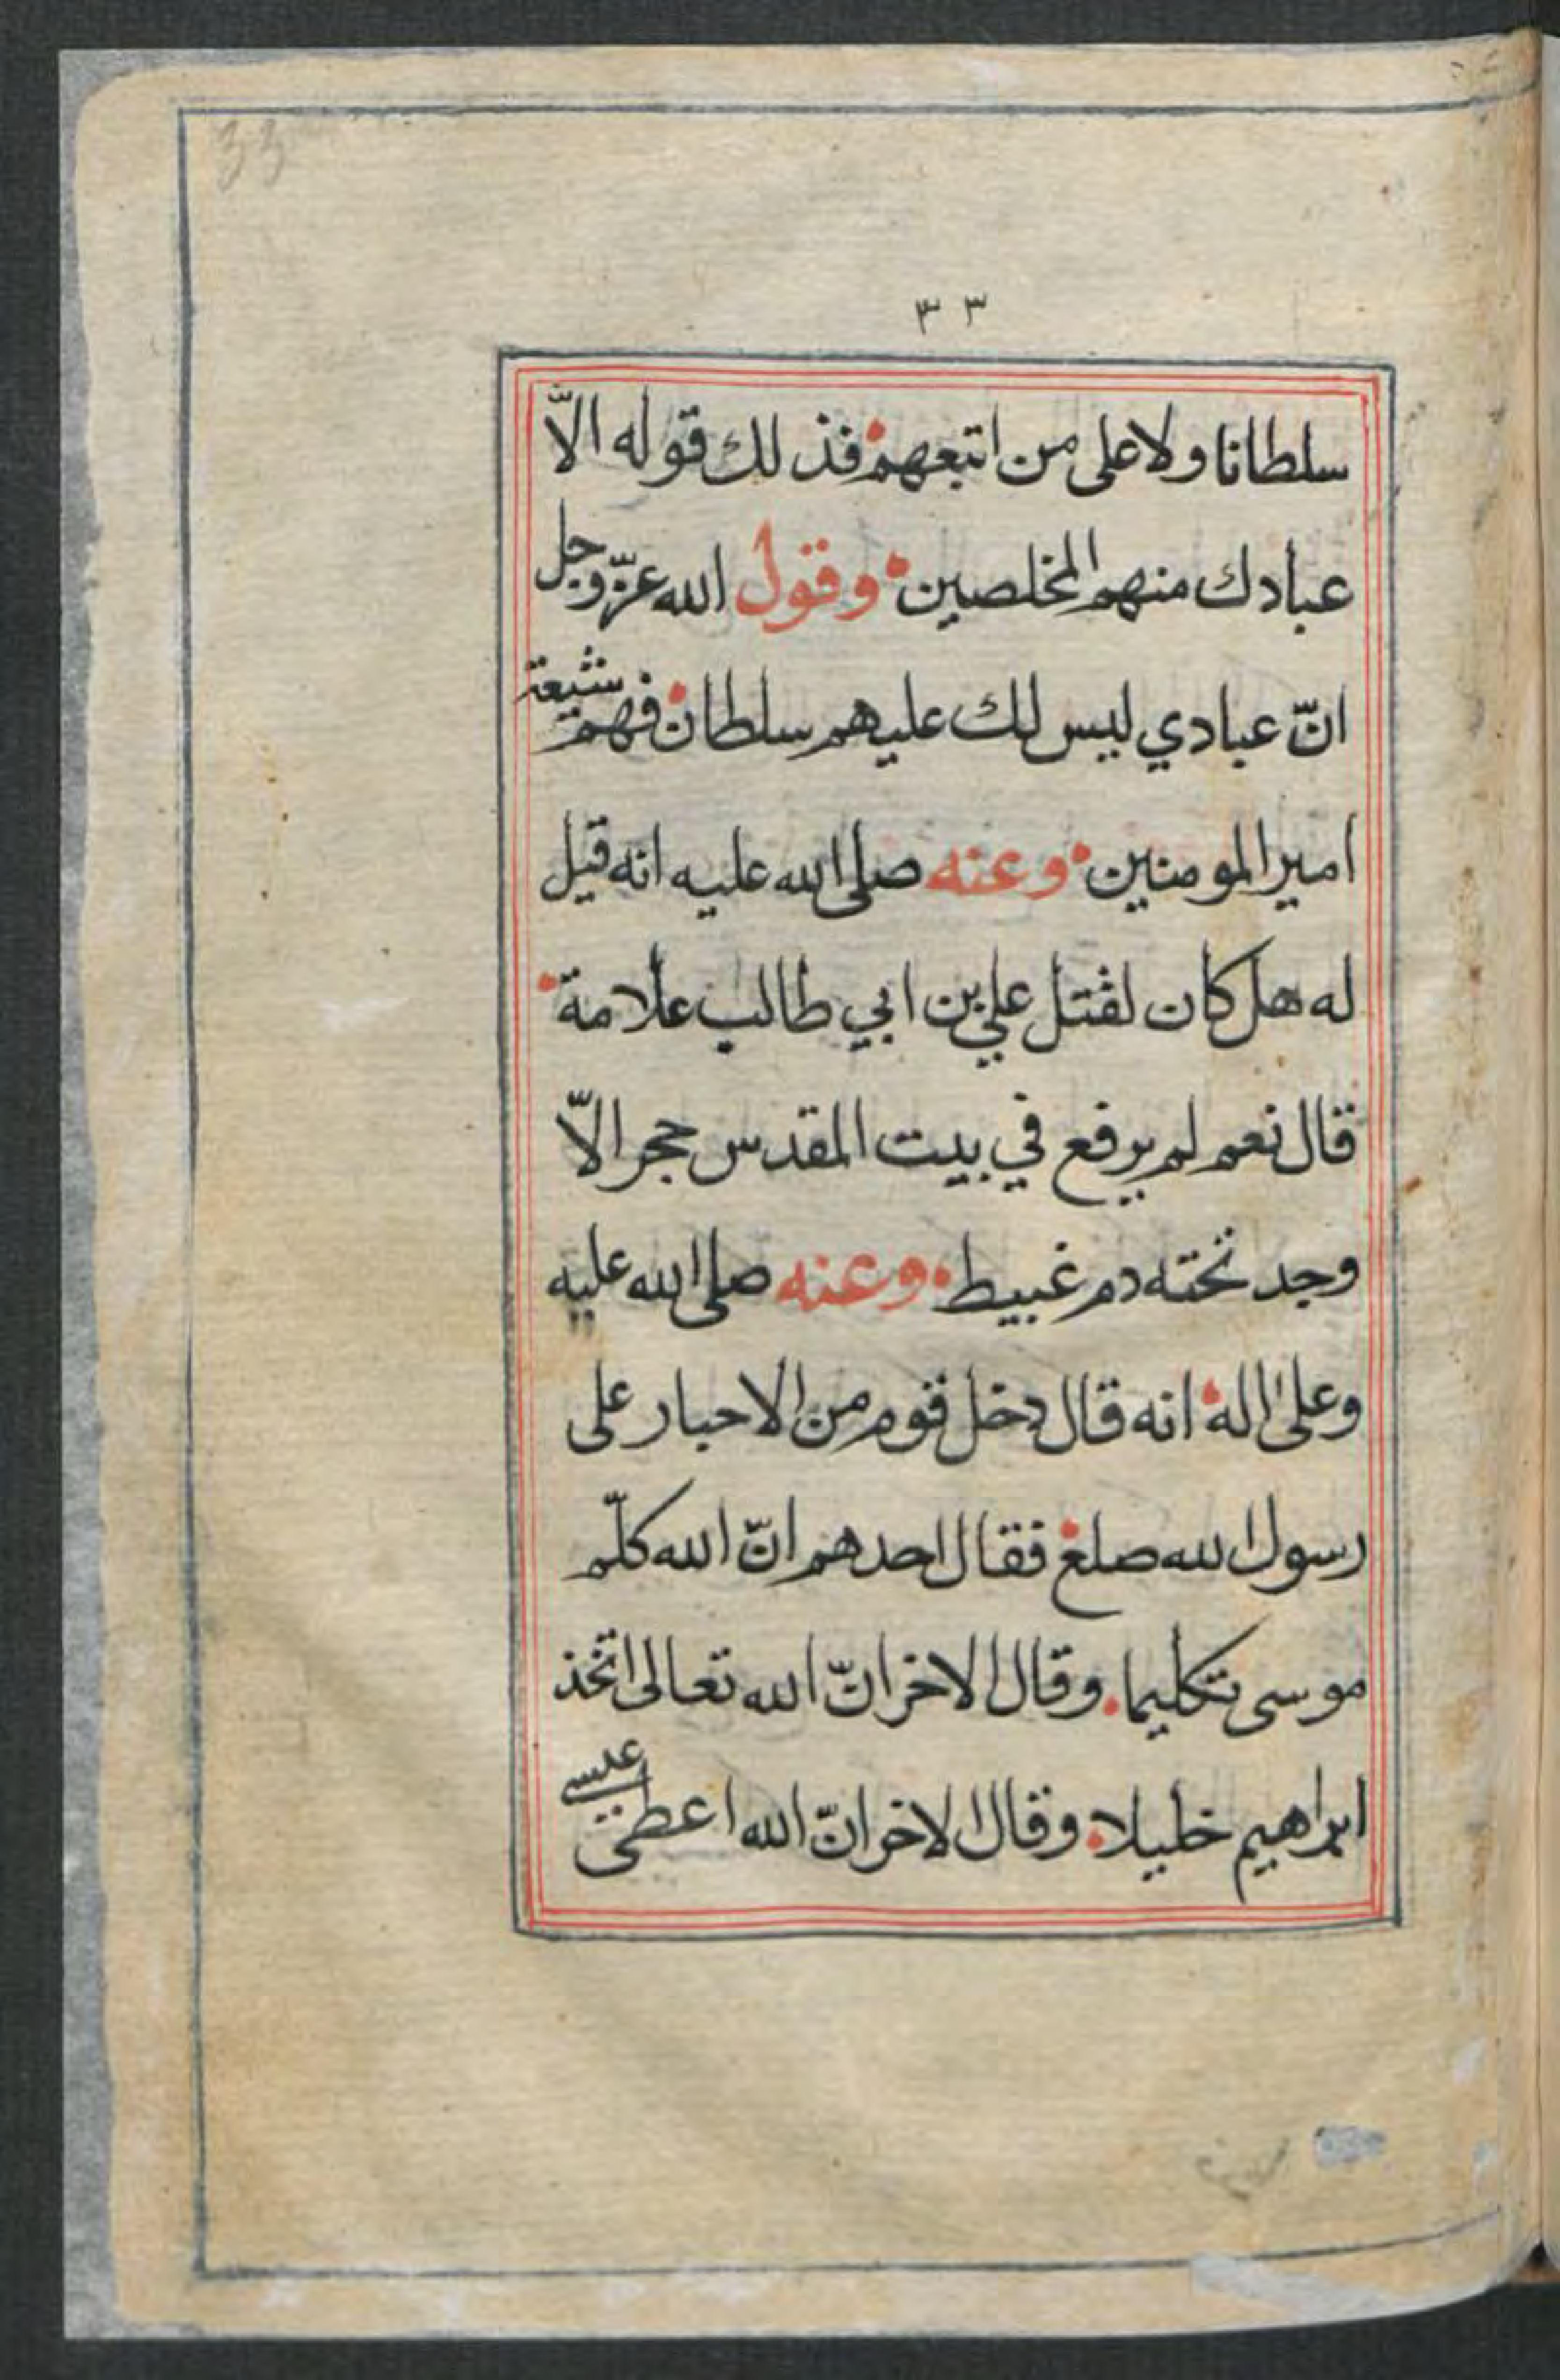 33
٣٣
سلطانا ولا على من اتبعهم فذلك قوله الّا
عبادك منهم المخلصين وقول الله عزّ وجل
انّ عبادي ليس لك عليهم سلطان فهم شيعة
امير المومنين وعنه صلى الله عليه انه قيل
له هل كان لقتل علي بن ابي طالب علامة
قال نعم لم يرفع في بيت المقدس حجر الّا
وجد تحته دم غبيط وعنه صلى الله عليه
وعلى اله انه قال دخل قوم من الاحبار على
رسول الله صلع فقال احدهم انّ الله كلّم
موسى تكليما وقال الاخر انّ الله تعالى اتخذ
ابراهيم خليلا وقال الاخر انّ الله اعطى عيسى